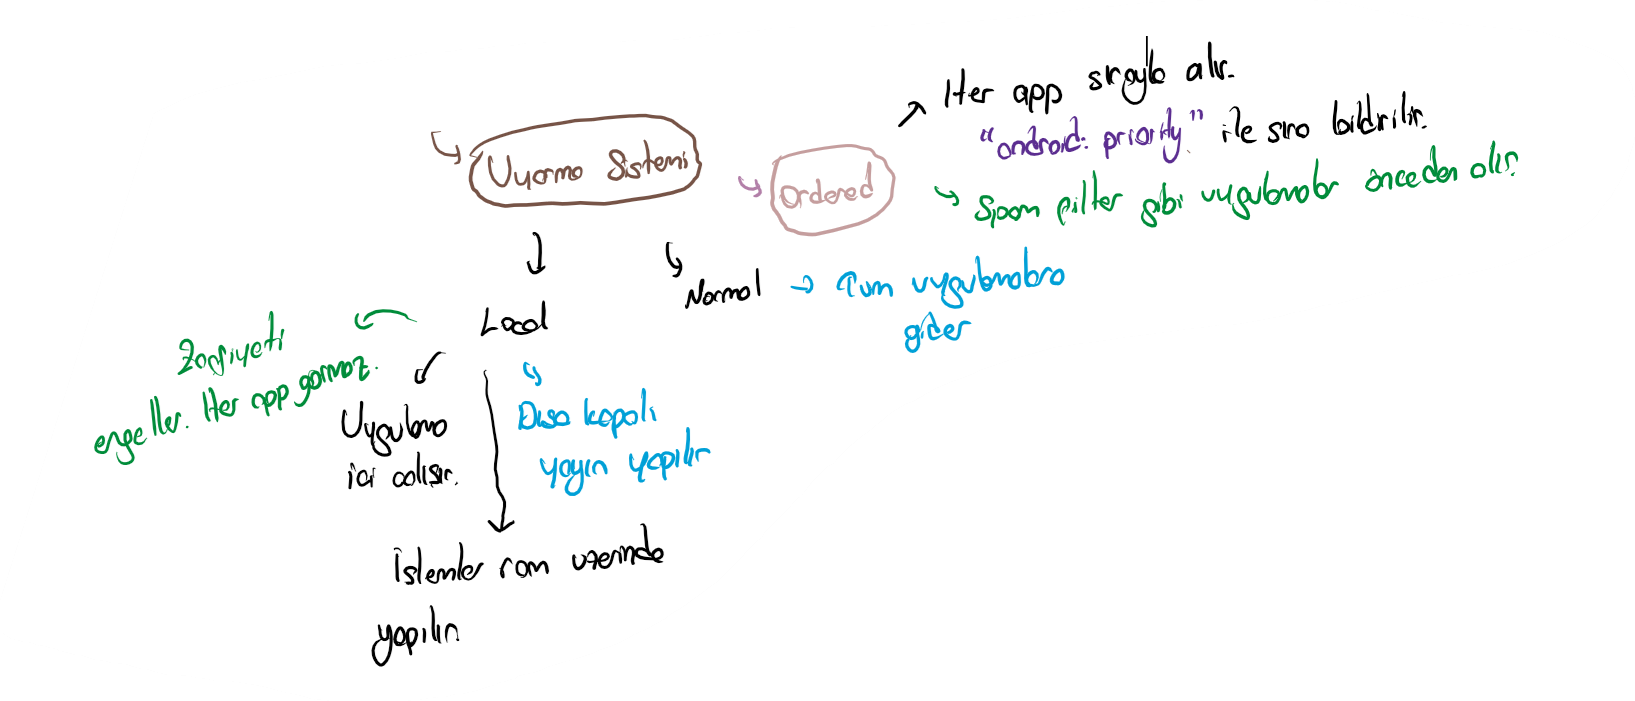 Her app sırayla alır.
"android: priority" ile sıra bildirilir.
Uyarma Sistemi
Ordered
Spam filter gibi uygulamalar önceden alır.
Normal → Tüm uygulamalara
gider
Local
Zaafiyeti
engeller. Her app görmez.
Uygulama
içi çalışır.
Dışa kapalı
yayın yapılır
İslemler ram üzerinde
yapılır